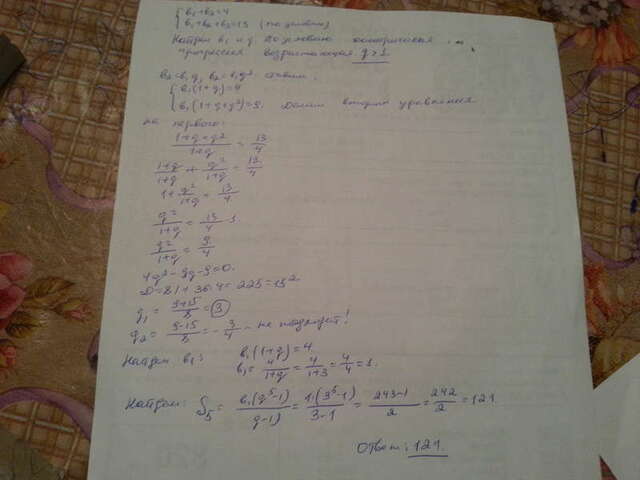 b₁+b₂=4
b₁+b₂+b₃=13 (по условию)
Найдем b₁ и q. По условию геометрическая
прогрессия возрастающая q>1.
b₂=b₁q, b₃=b₁q²
b₁(1+q)=4
b₁(1+q+q²)=13. Делим второе уравнение
на первое:
(1+q+q²)/(1+q) = 13/4
(1+q)/(1+q) + q²/(1+q) = 13/4
1+ q²/(1+q) = 13/4
q²/(1+q) = 13/4 - 1
q²/(1+q) = 9/4
4q²-9q-9=0.
D=81+36·4=225=15²
q₁ = (9+15)/8 = 3
q₂ = (9-15)/8 = -3/4 - не подходит!
Найдем b₁: b₁(1+q)=4
b₁ = 4/(1+q) = 4/(1+3) = 4/4 = 1.
Найдем: S₅ = b₁(q⁵-1)/(q-1) = 1·(3⁵-1)/(3-1) = (243-1)/2 = 242/2 = 121
Ответ: 121.